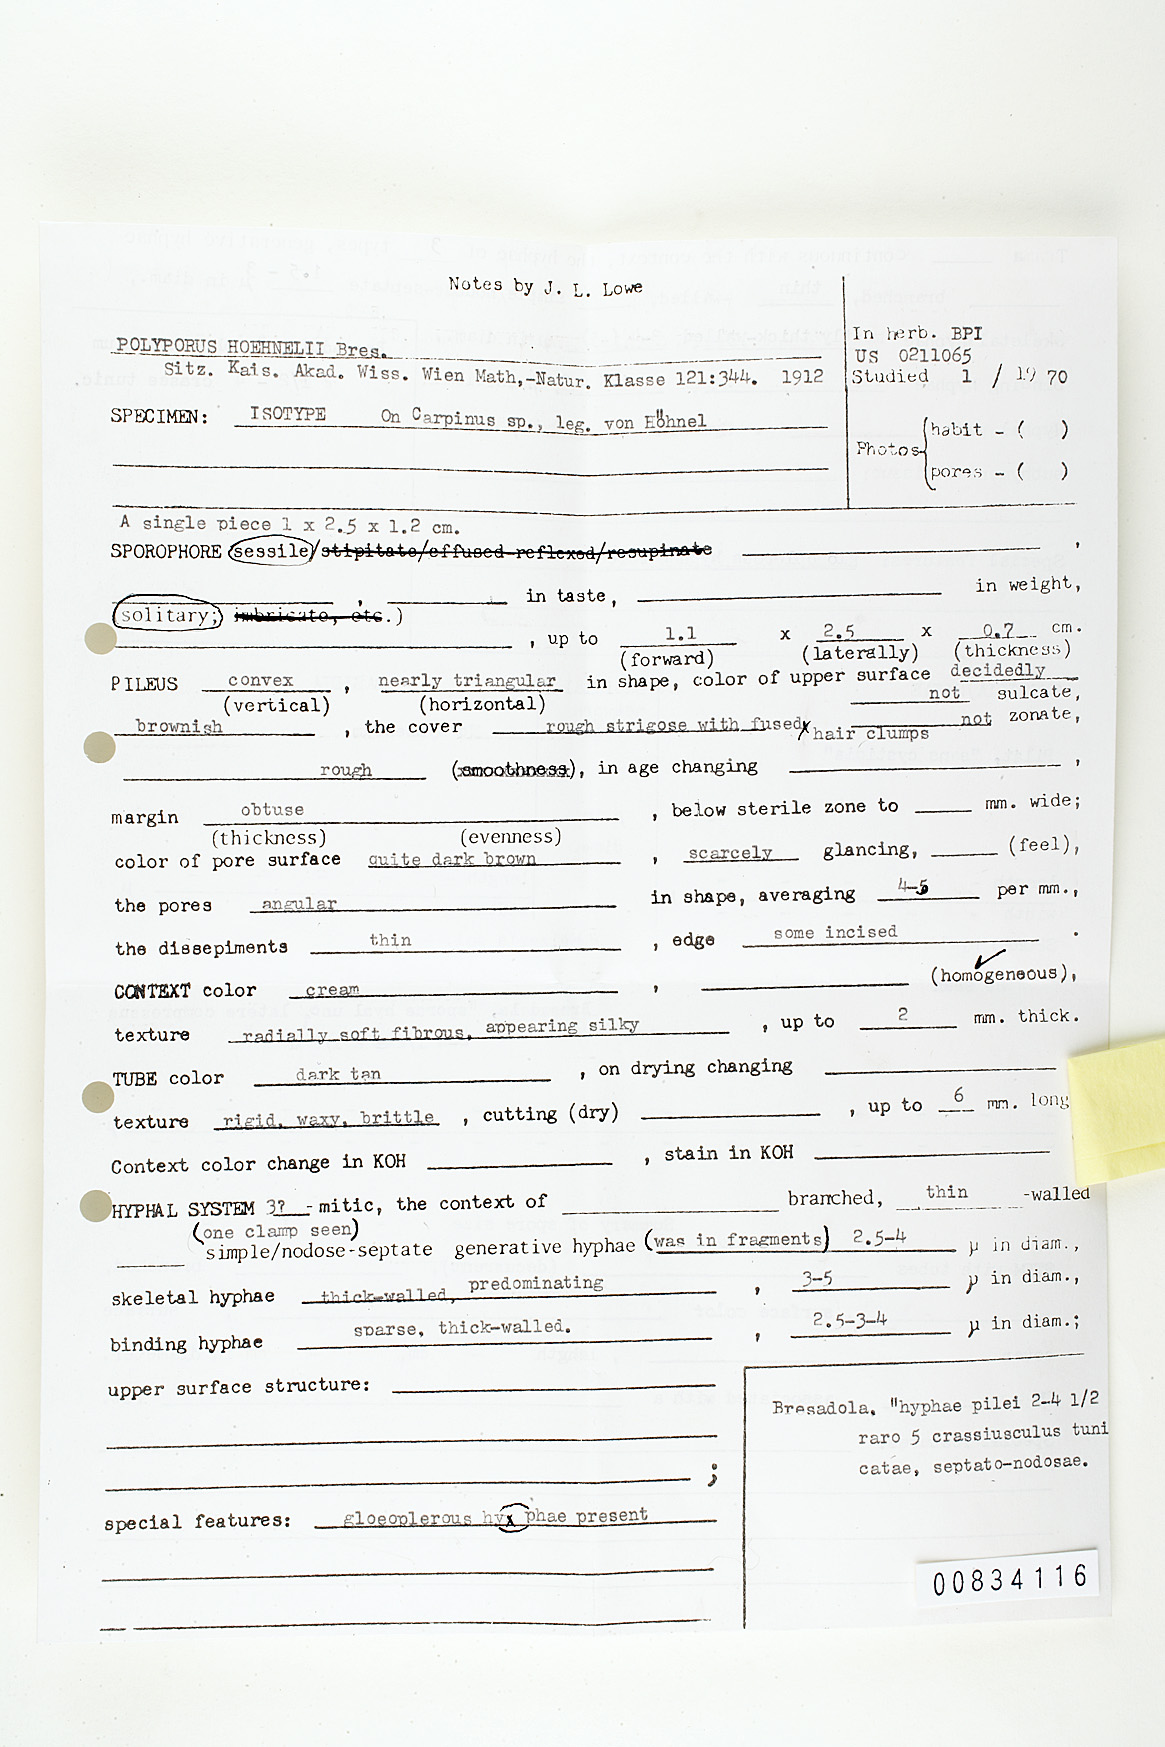 Notes by J. L. Lowe
POLYPORUS HOEHNELII Bres.
Sitz. Kais. Akad. Wiss. Wien Math,-Natur. Klasse 121:344. 1912
In herb. BPI
US 0211065
Studied 1 / 19 70
SPECIMEN: ISOTYPE On Carpinus sp., leg. von Höhnel
Photos
habit - ( )
pores - ( )
A single piece 1 x 2.5 x 1.2 cm.
SPOROPHORE (sessile)/stipitate/effused-reflexed/resupinate ,
, in taste, in weight,
(solitary;) imbricate, etc.)
, up to 1.1 x 2.5 x 0.7 cm.
(forward) (laterally) (thickness)
PILEUS convex , nearly triangular in shape, color of upper surface decidedly
(vertical) (horizontal) not sulcate,
brownish , the cover rough strigose with fusedx hair clumps not zonate,
rough (smoothness), in age changing ,
margin obtuse , below sterile zone to mm. wide;
(thickness) (evenness)
color of pore surface quite dark brown , scarcely glancing, (feel),
the pores angular in shape, averaging 4-5 per mm.,
the dissepiments thin , edge some incised .
CONTEXT color cream , (homogeneous),
texture radially soft fibrous, appearing silky , up to 2 mm. thick.
TUBE color dark tan , on drying changing
texture rigid, waxy, brittle , cutting (dry) , up to 6 mm. long
Context color change in KOH , stain in KOH
HYPHAL SYSTEM 3? -mitic, the context of branched, thin -walled
(one clamp seen)
simple/nodose-septate generative hyphae (was in fragments) 2.5-4 µ in diam.,
skeletal hyphae thick-walled, predominating , 3-5 µ in diam.,
binding hyphae sparse, thick-walled. , 2.5-3-4 µ in diam.;
upper surface structure:
;
Bresadola. "hyphae pilei 2-4 1/2
raro 5 crassiusculus tuni
catae, septato-nodosae.
special features: gloeoplerous hyx phae present
00834116